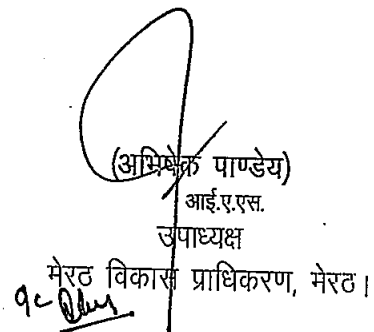 (अभिषेक पाण्डेय)
आई.ए.एस.
उपाध्यक्ष
मेरठ विकास प्राधिकरण, मेरठ।